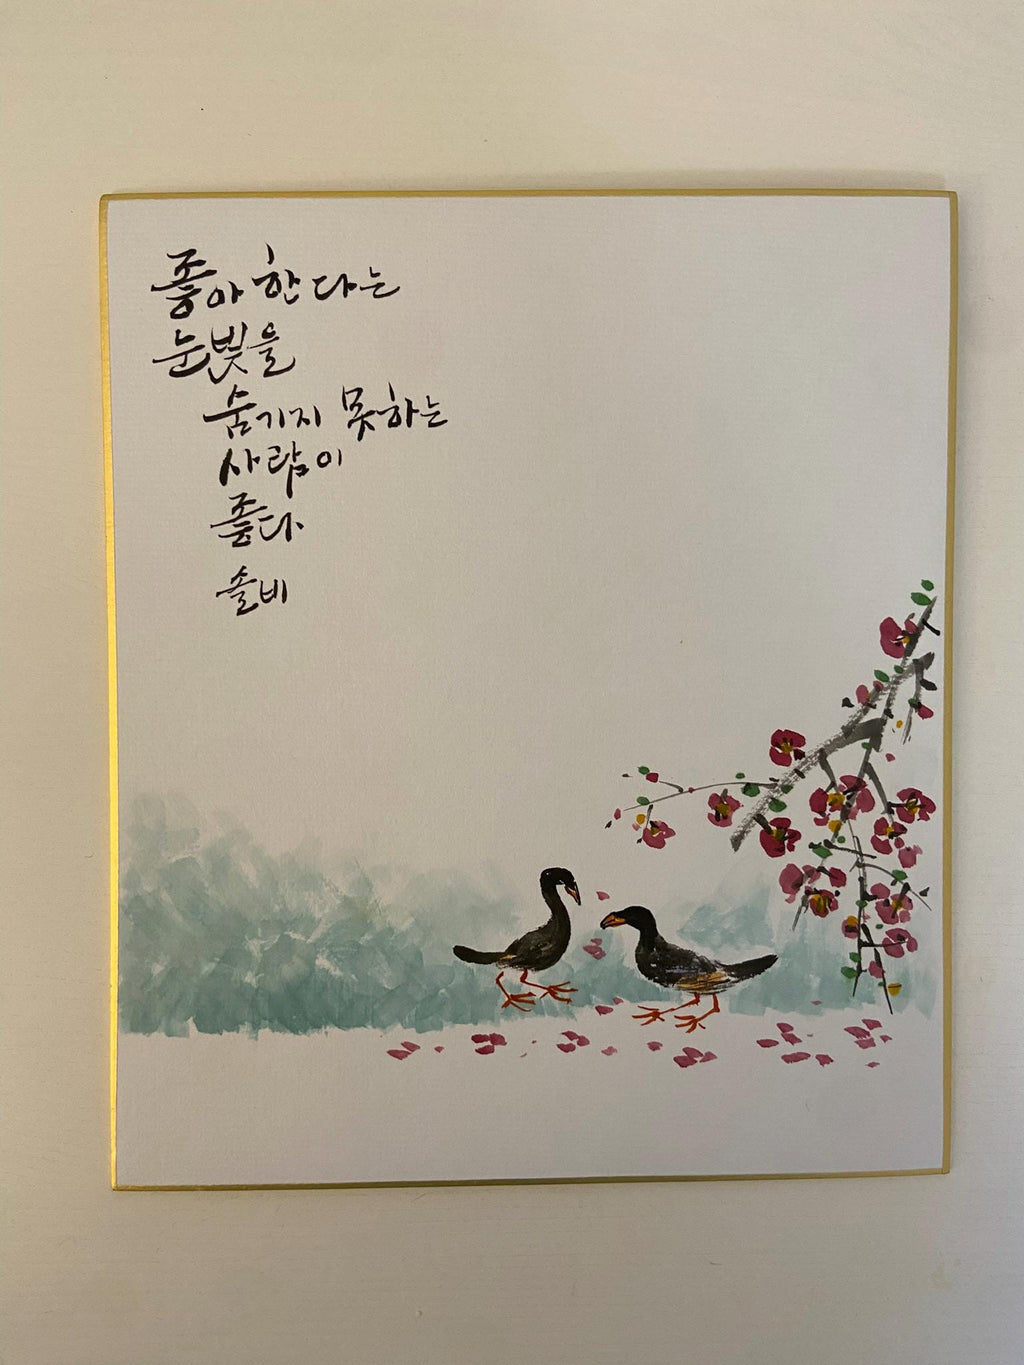 좋아한다는
눈빛을
숨기지 못하는
사람이
좋다
솔비